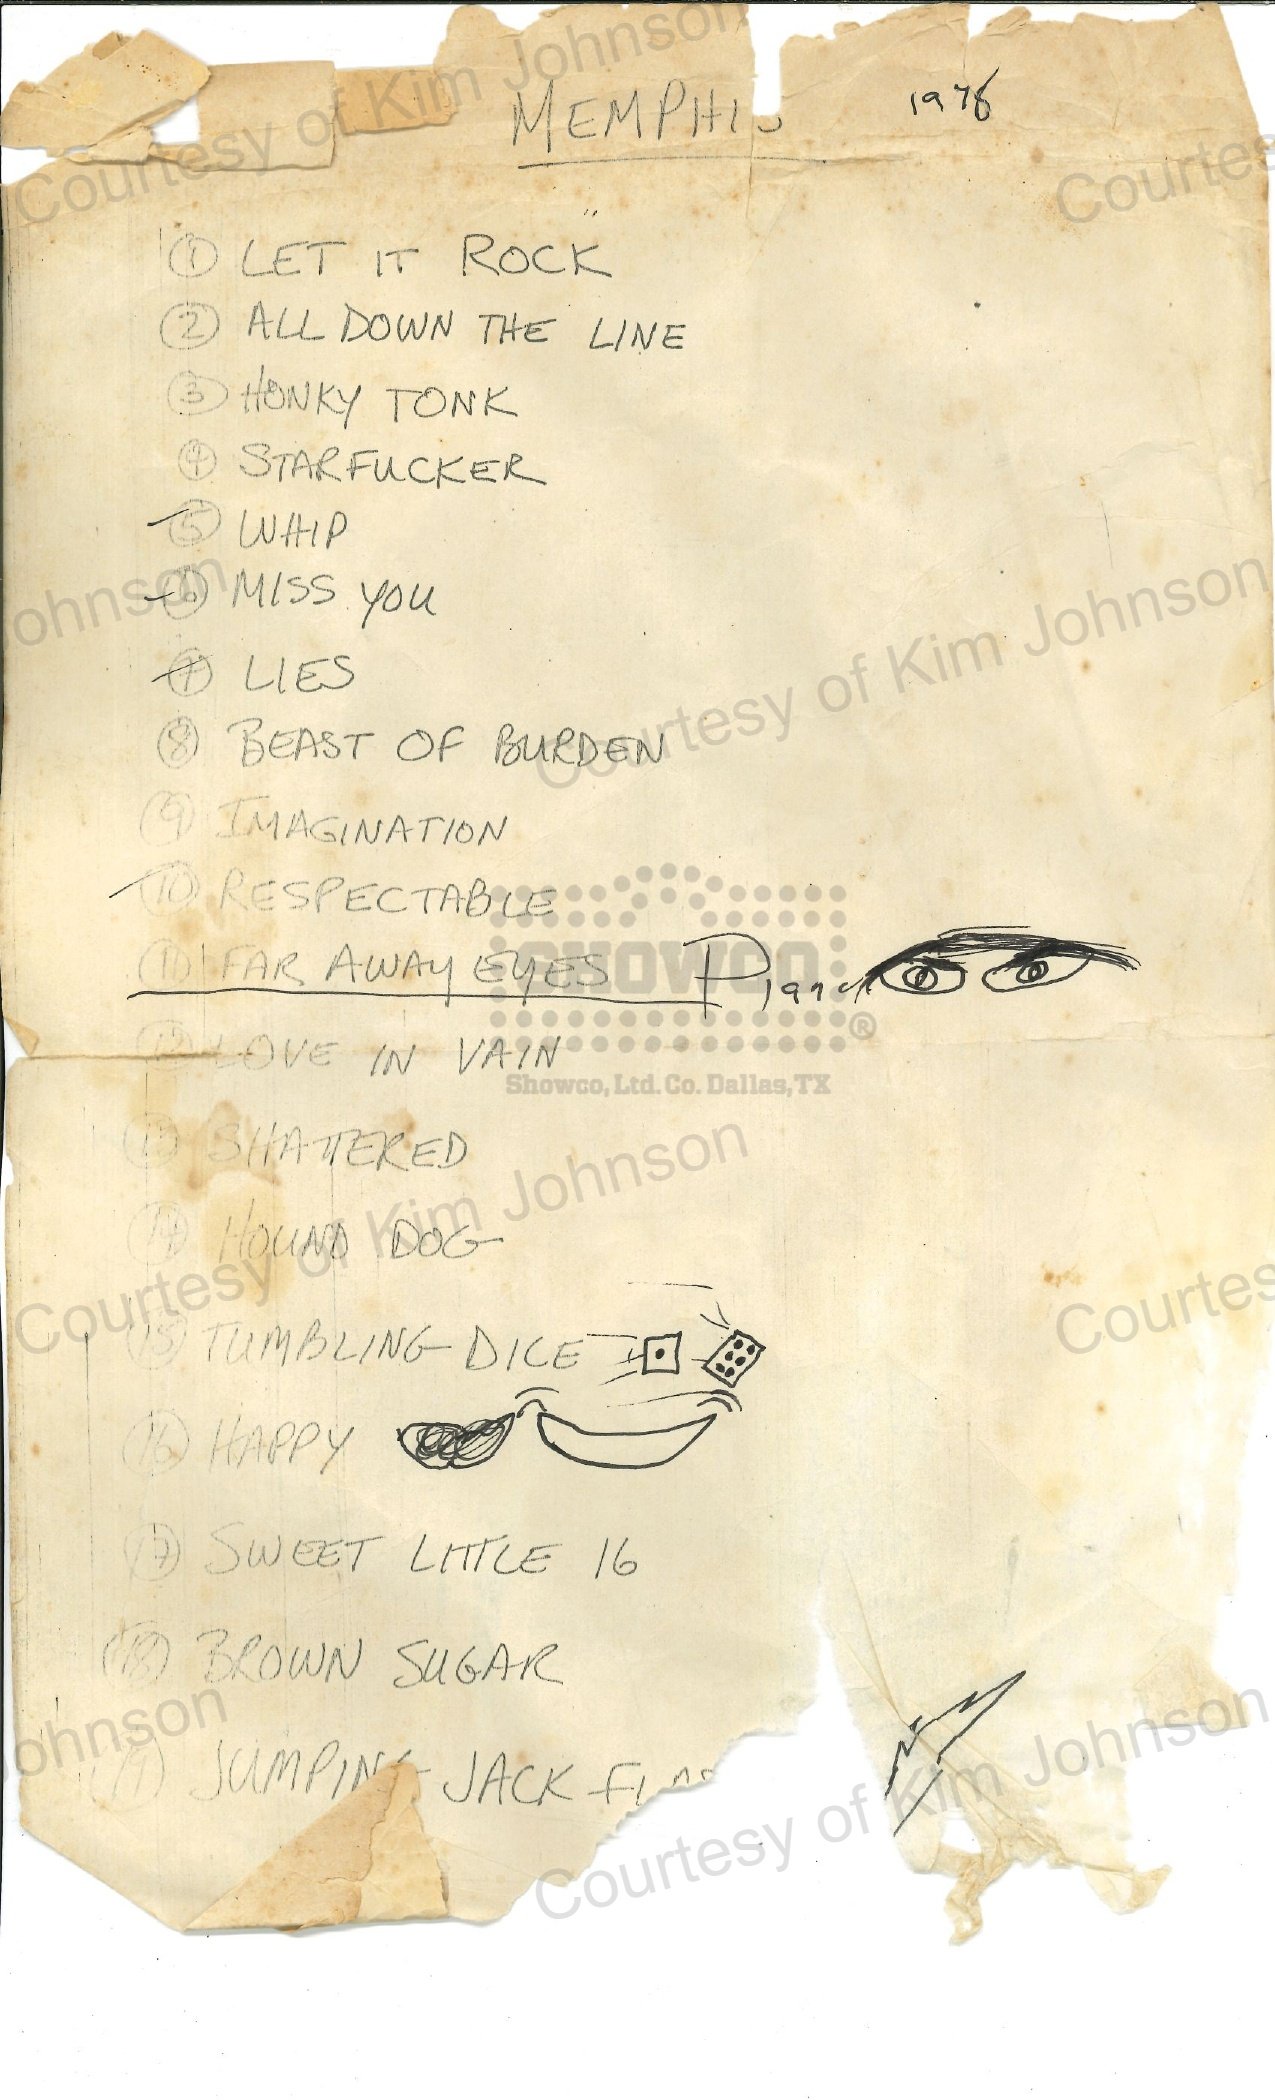 MEMPHIS 1978
① LET IT ROCK
② ALL DOWN THE LINE
③ HONKY TONK
④ STARFUCKER
⑤ WHIP
⑥ MISS YOU
⑦ LIES
⑧ BEAST OF BURDEN
⑨ IMAGINATION
⑩ RESPECTABLE
⑪ FAR AWAY EYES Piano
⑫ LOVE IN VAIN
⑬ SHATTERED
⑭ HOUND DOG
⑮ TUMBLING DICE
⑯ HAPPY
⑰ SWEET LITTLE 16
⑱ BROWN SUGAR
⑲ JUMPING JACK FLAS
SHOWCO ®
Showco, Ltd. Co. Dallas, TX
Courtesy of Kim Johnson
Courtes
Johnson
Courtesy of Kim Johnson
Courtesy of Kim Johnson
Courtes
Johnson
Courtesy of Kim Johnson